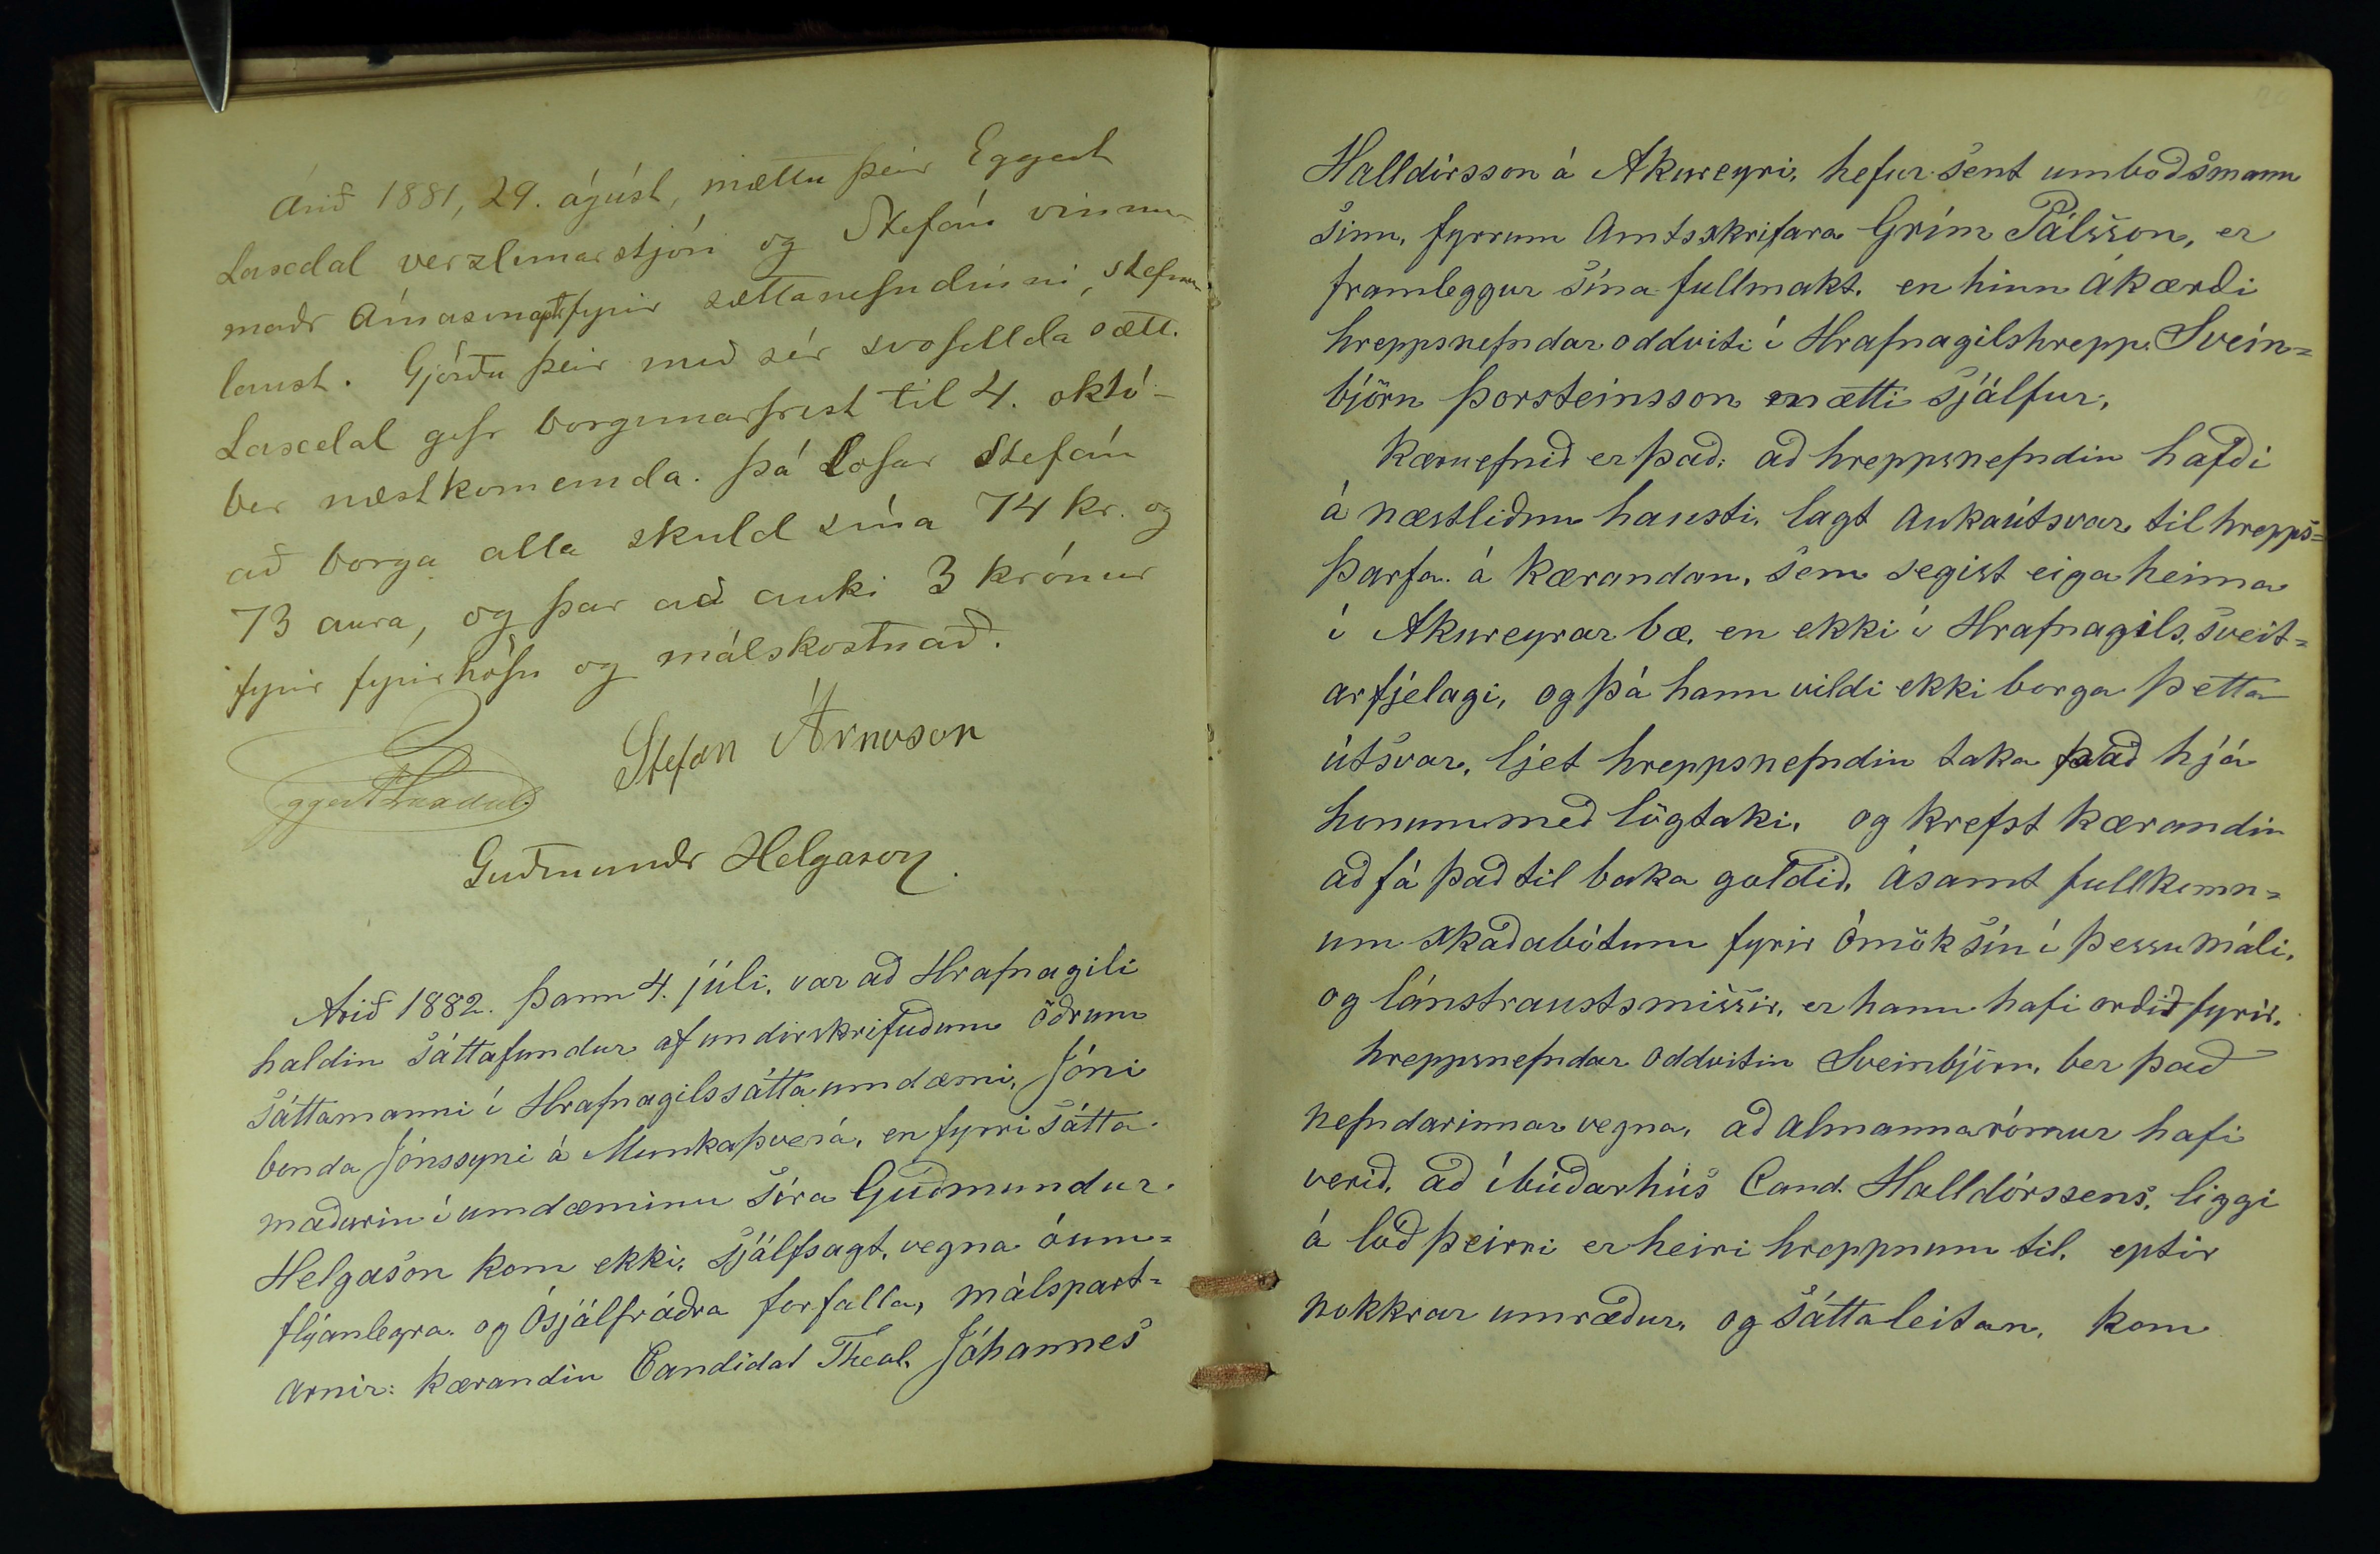 Árið 1881, 29. ágúst, mættu þeir Eggert
Laxdal verzlunarstjóri og Stefán vinnu-
maðr Árnason fyrir sættanefndinni, stefnu-
laust. Gjörðu þeir með sér svofellda sætt.
Laxdal gefr borgunarfrest til 4. októ-
ber næstkomanda. Þá lofar Stefán
að borga alla skuld sína 74 kr. og
73 aura, og þar að auki 3 krónur
fyrir fyrirhöfn og málskostnað.
Stefán Árnason
Eggert Laxdal
Guðmundr Helgason.
Árið 1882. þann 4. júlí, var að Hrafnagili
haldin sáttafundur af undirskrifuðum öðrum
Sáttamanni í Hrafnagilssáttaumdæmi, Jóni
bonda Jónssyni á Munkaþverá, en fyrri sátta-
maðurin í umdæminu Síra Guðmundur
Helgason kom ekki, sjálfsagt, vegna óum=
flýanlegra og Ósjálfráðra forfalla, málspart=
arnir: kærandin Candidat Theol. Jóhannes
Halldórsson á Akureyri, hefur sent umboðsmann
sinn, fyrrum Amtsskrifara Grím Pálsson, er
framleggur sína fullmakt. en hinn Ákærði
hreppsnefndar oddviti í Hrafnagilshrepp. Svein=
björn Þorsteinsson mætti sjálfur,
Kæruefnið er það: að hreppsnefndin hafði
á næstliðnu hausti, lagt Aukaútsvar, til hrepps=
þarfa á kærandan, sem segist eiga heima
í Akureyrar bæ, en ekki í Hrafnagils, sveit=
arfjelagi, og þá hann vildi ekki borga þetta
útsvar, ljet hreppsnefndin taka það hjá
honum með lögtaki, og krefst kærandin
að fá það til baka goldið, ásamt fullkomn=
um skaðabótum fyrir Ómök sín í þessu máli,
og lánstraustsmissir, er hann hafi orðið fyrir.
hreppsnefndar oddvitin Sveinbjörn, ber það
nefndarinnar vegna, að almannarómur hafi
verið, að íbúðarhús Cand. Halldórssens, liggi
á lóð þeirri er heiri hreppnum til, eptir
nokkrar umræður, og sáttaleitan, kom